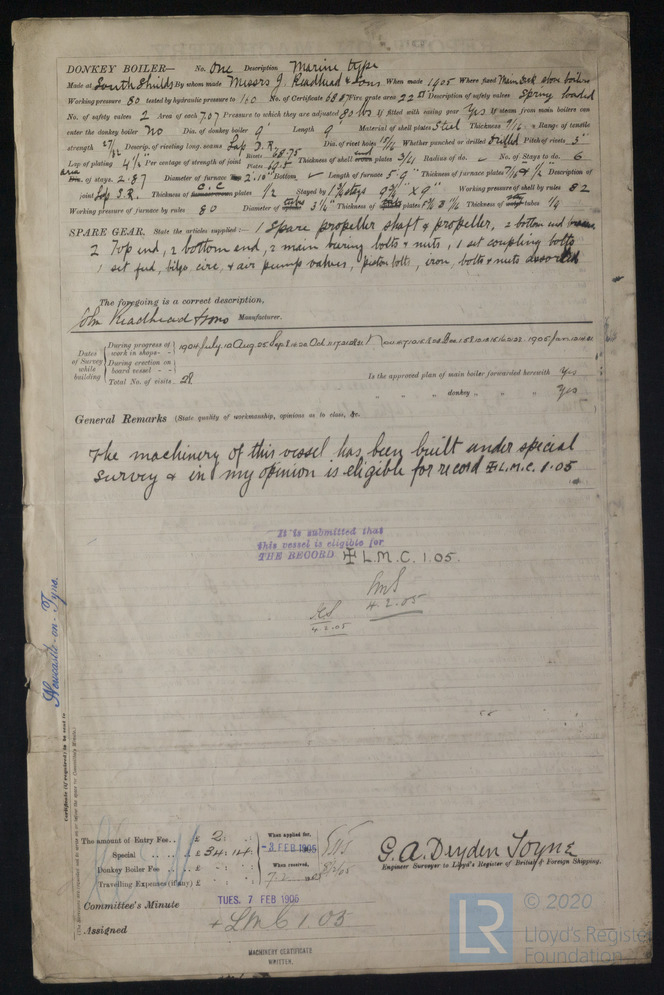 DONKEY BOILER— No. One Description Marine type
Made at South Shields By whom made Messrs J. Readhead & Sons When made 1905 Where fixed Main deck above boilers
Working pressure 80 tested by hydraulic pressure to 160 No. of Certificate 6887 Fire grate area 22 Description of safety valves Spring loaded
No. of safety valves 2 Area of each 7.07 Pressure to which they are adjusted 80 lbs If fitted with easing gear Yes If steam from main boilers can
enter the donkey boiler No Dia. of donkey boiler 9' Length 9' Material of shell plates Steel Thickness 9/16 Range of tensile
strength 27/32 Descrip. of riveting long. seams Lap D.R. Dia. of rivet holes 15/16 Whether punched or drilled Drilled Pitch of rivets 3"
Lap of plating 4 1/2" Per centage of strength of joint Rivets 68.75 Plates Thickness of shell end plates 3/4 Radius of do. – No. of Stays to do. 6
Area of stays 2.87 Diameter of furnace 2'.10" Bottom ✓ Length of furnace 5-9 Thickness of furnace plates 7/16 & 1/2 Description of
joint Lap S.R. Thickness of C.C. plates 1/2 Stayed by Working pressure of shell by rules 82
Working pressure of furnace by rules 80 Diameter of 3 1/4" Thickness of plates Thickness of tubes 1/4
SPARE GEAR. State the articles supplied:— 1 Spare propeller shaft & propeller, 2 bottom end
2 Top end, 2 bottom end, 2 main bearing bolts & nuts, 1 set coupling bolts
1 set feed, bilge, circ, & air pump valves, piston bolts, iron, bolts & nuts assorted
The foregoing is a correct description,
John Readhead & Sons Manufacturer.
Dates of Survey while building
During progress of work in shops - - 1904 July
During erection on board vessel - - -
Total No. of visits
Is the approved plan of main boiler forwarded herewith Yes
" " " donkey " " " Yes
General Remarks (State quality of workmanship, opinions as to class, &c.
The machinery of this vessel has been built under special
survey & in my opinion is eligible for record ✠ L.M.C. 1.05
It is submitted that
this vessel is eligible for
THE RECORD ✠ L.M.C. 1.05.
4.2.05
4.2.05
Newcastle-on-Tyne.
Certificate (if required) to be sent to
The amount of Entry Fee . . £ 2 : :
Special . . . . £ 34 : 14 :
Donkey Boiler Fee . . . £ : :
Travelling Expenses (if any) £ : :
When applied for,
-3 FEB 1905
When received,
G. A. Dryden Toyne
Engineer Surveyor to Lloyd's Register of British & Foreign Shipping.
Committee's Minute TUES. 7 FEB 1905
Assigned + LMC 1.05
MACHINERY CERTIFICATE
WRITTEN.
LR © 2020
Lloyd's Register
Foundation